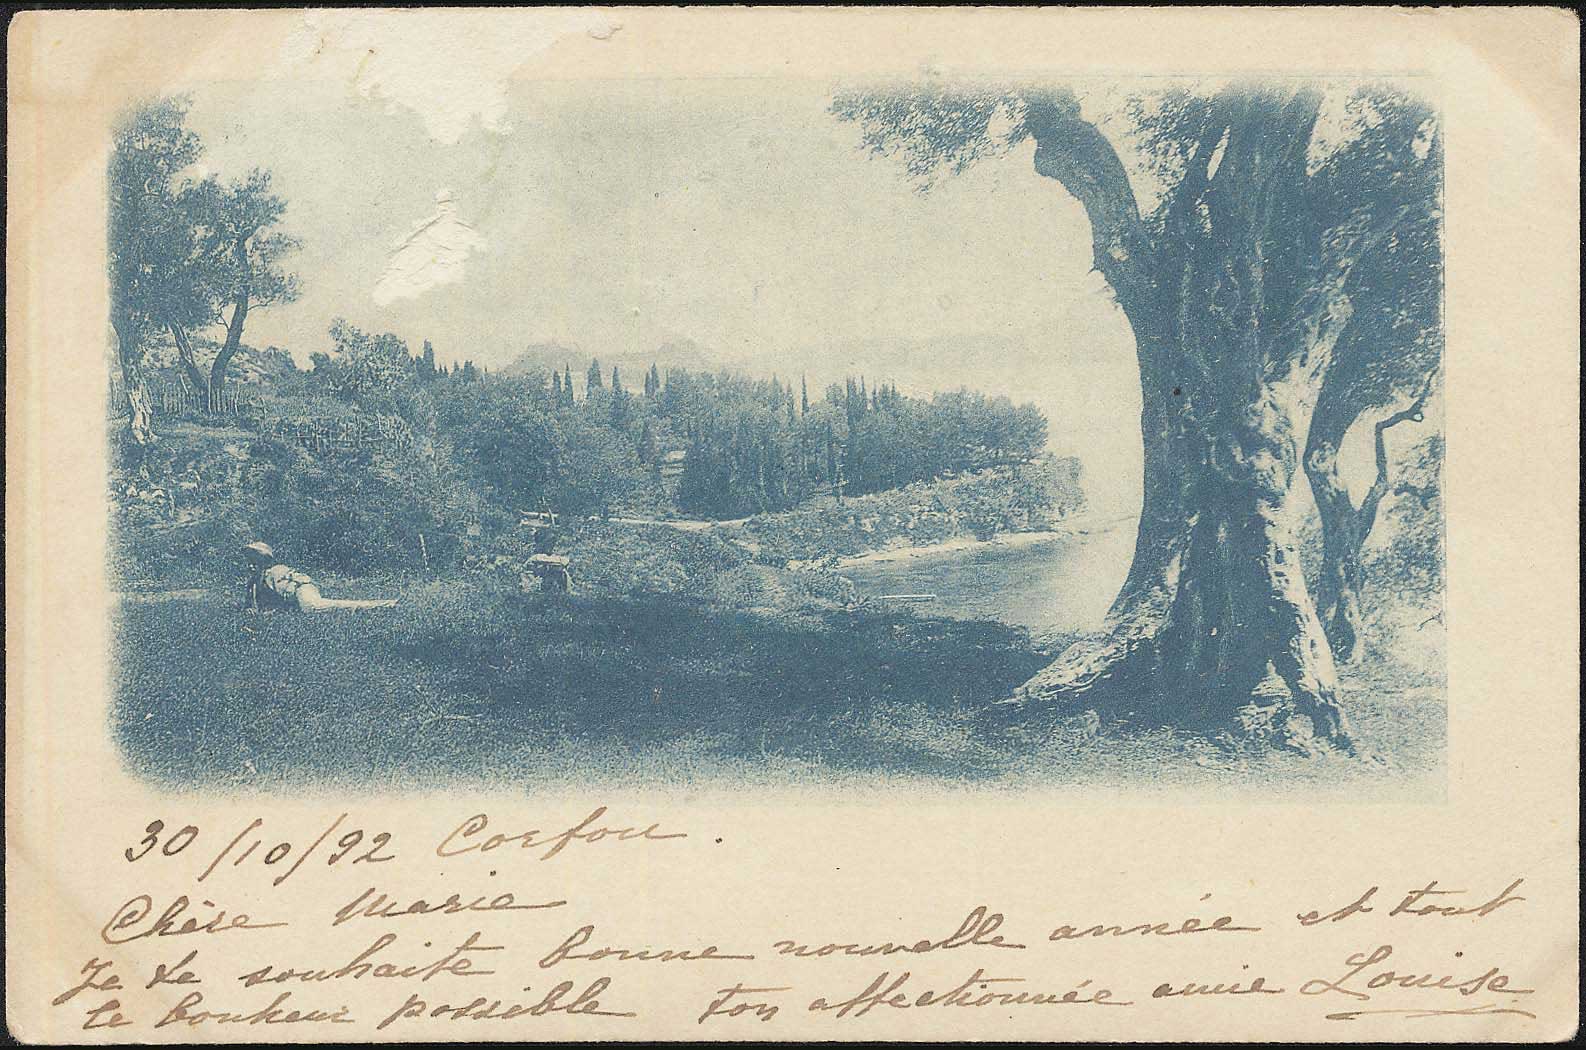 30/10/92 Corfou.
Chère Marie
Je te souhaite bonne nouvelle année et tout
le bonheur possible ton affectionnée amie Louise